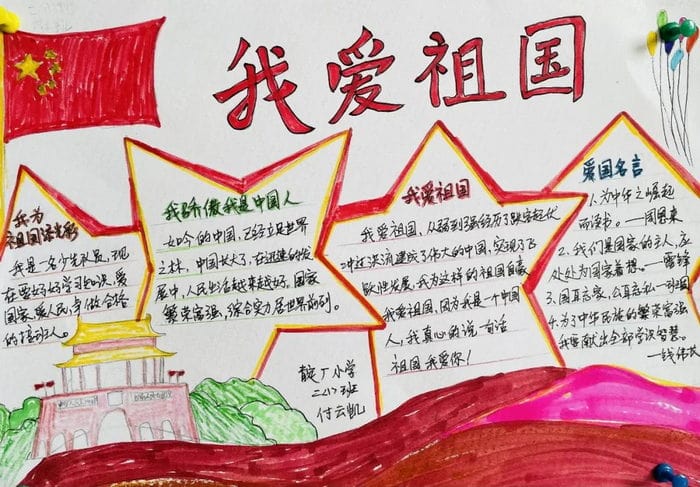 我爱祖国
我为
祖国添光彩
我是一名少先队员,现
在要好好学习知识,爱
国家,爱人民,争做合格
的接班人。
我骄傲我是中国人
如今的中国,已经立足世界
之林,中国长大了,在迅速的发
展中,人民生活越来越好,国家
繁荣富强,综合实力居世界前列。
我爱祖国
我爱祖国,从弱到强经历了跌宕起伏
建成了伟大的中国,实现了飞
跃性发展,我为这样的祖国自豪
我爱祖国,因为我是一个中国
人,我真心的说一句话
祖国 我爱你!
爱国名言
1.为中华之崛起
而读书。—周恩来
2.我们是国家的主人,应
处处为国家着想。—雷锋
3.国耳忘家,公耳忘私—班固
4.为了中华民族的繁荣富强
我要献出全部学识智慧。
—钱伟长
小学
三(2)班
付云凯